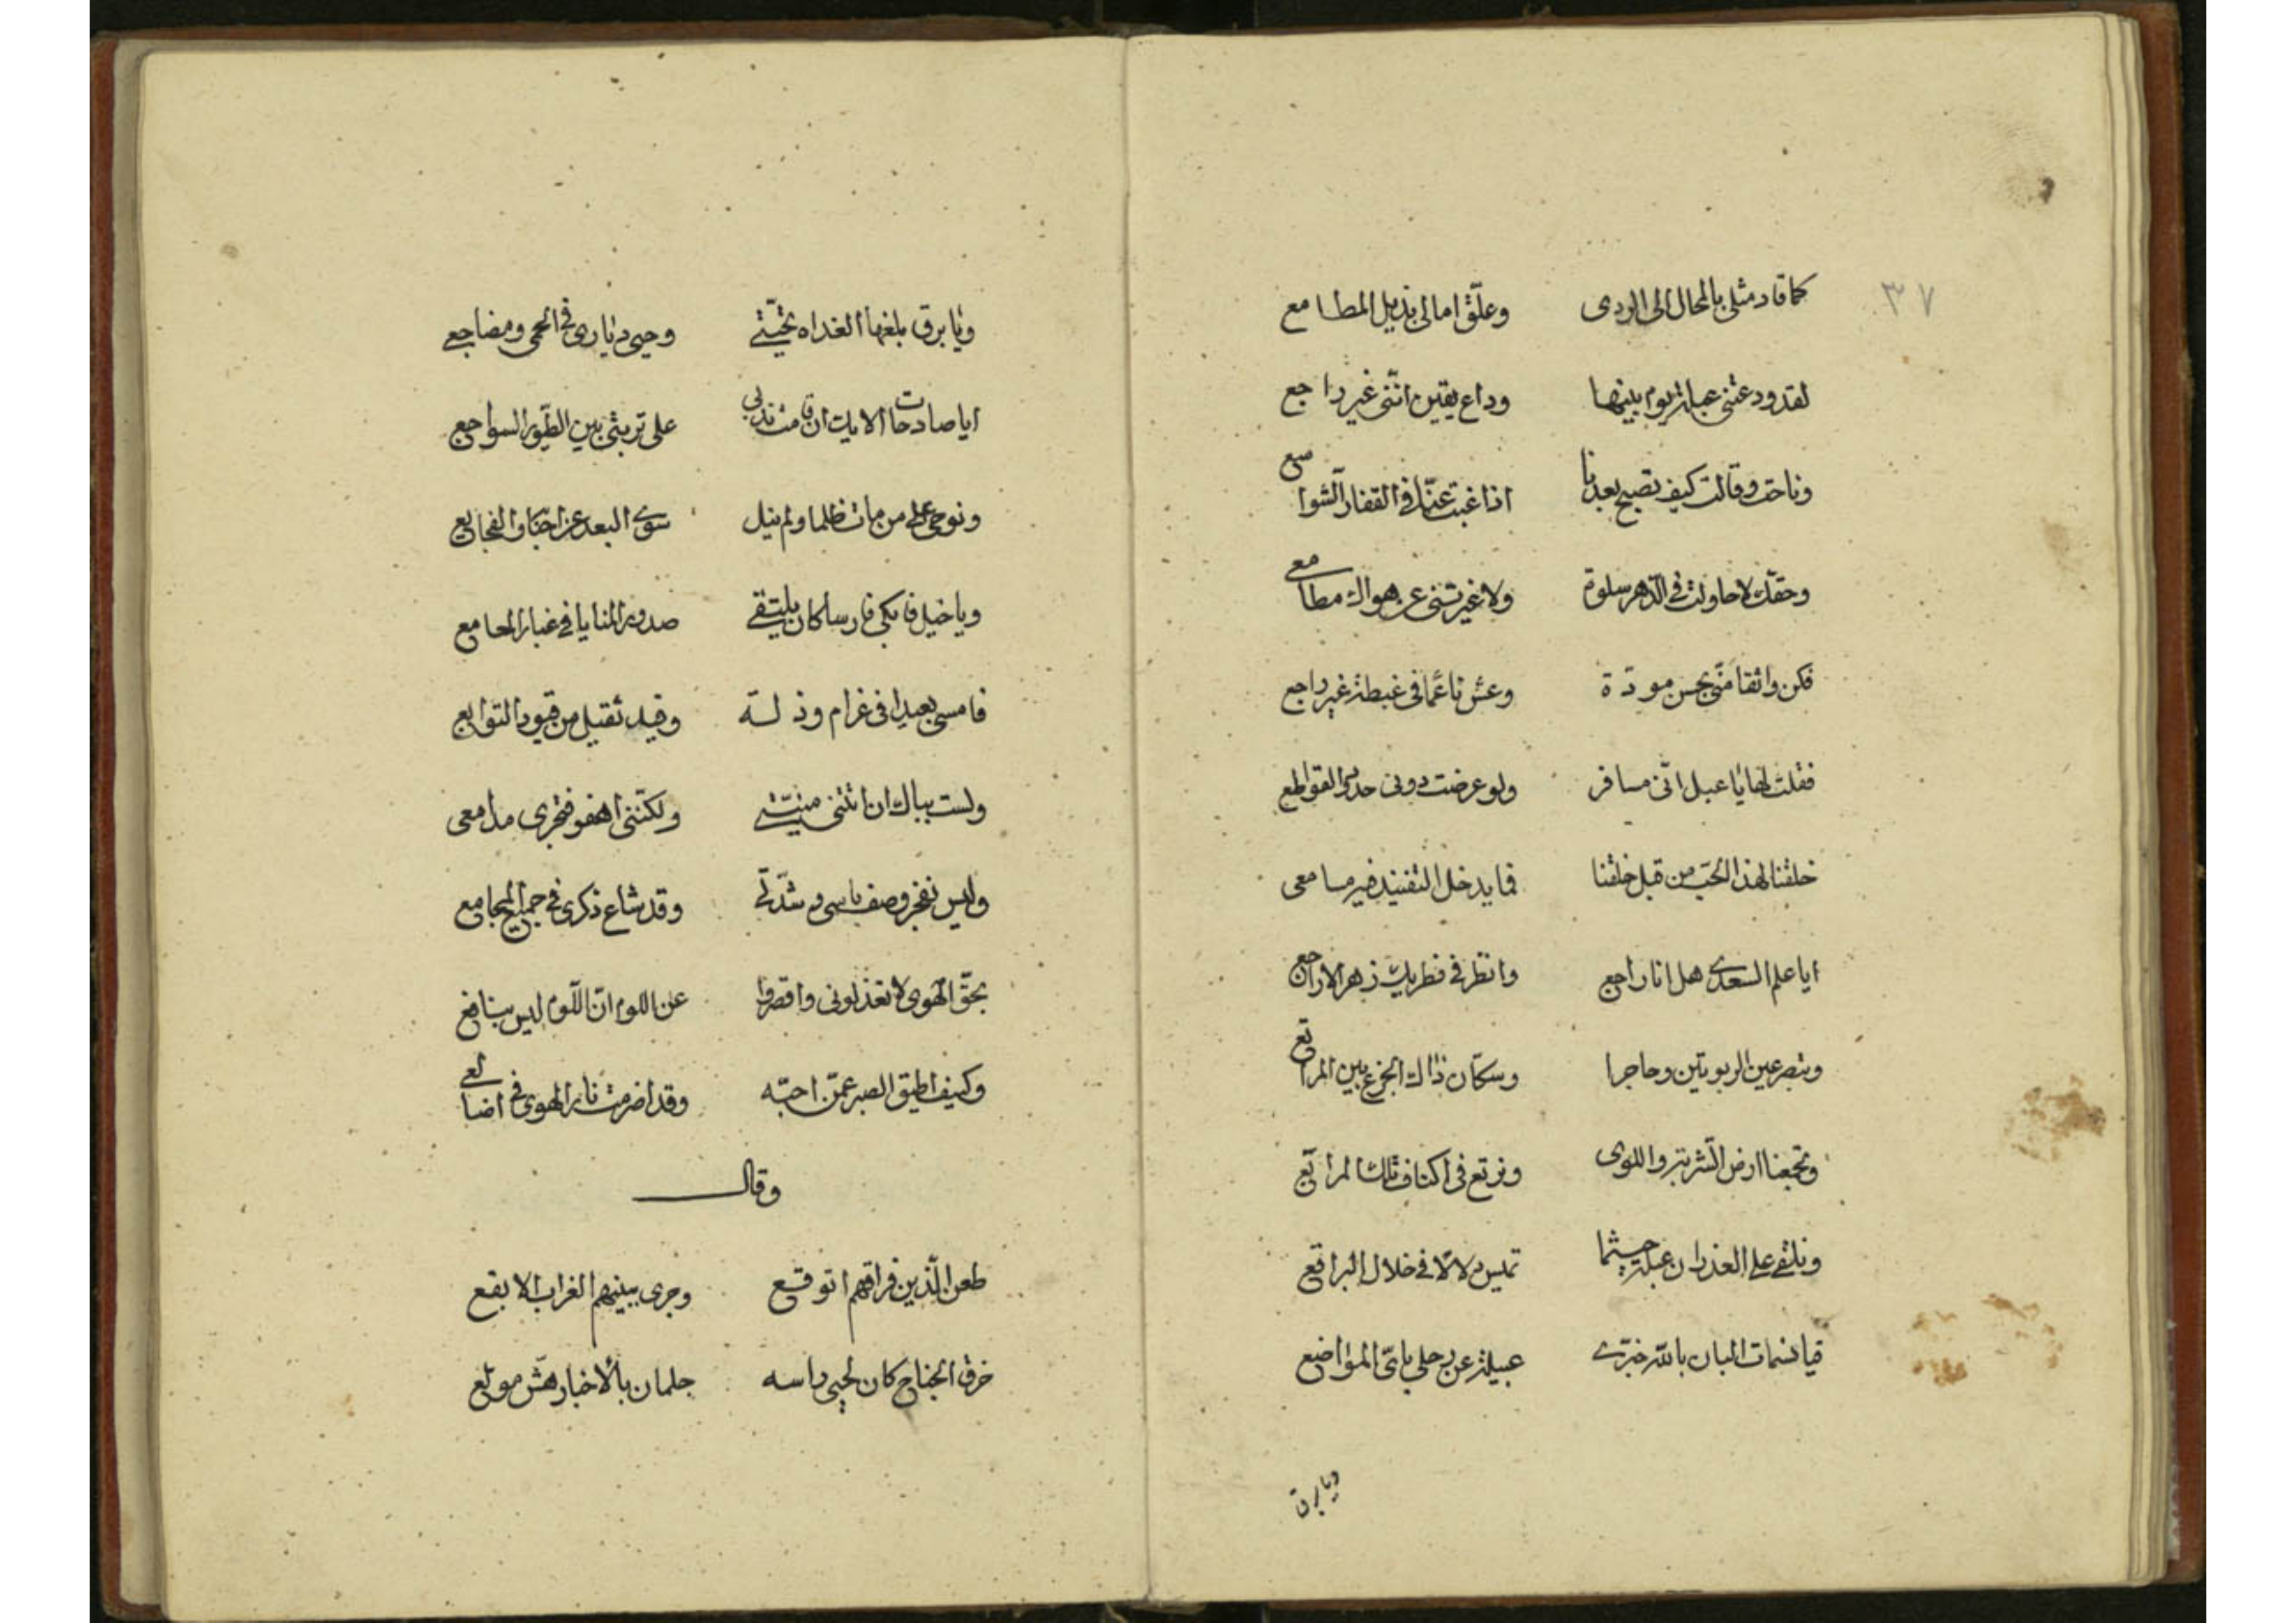 ٣٧
كما قاد مثلى بالمحال الى الردى وعلّق امالى بذيل المطامع
لقد ودعتنى عبلة يوم بينها وداع يقين انّنى غير راجع
وناحت وقالت كيف تصبح بعدنا اذا غبت عنّا فى القفار الشواسع
وحقّك لا حاولت فى الدّهر سلوة ولا غيرتنى عن هواك مطامعى
فكن واثقا منّى بحسن مودّة وعش ناعمًا فى غبطة غير راجع
فقلت لها يا عبل انّى مسافر ولو عرضت دونى حدود القواطع
خلقنا لهذا الحبّ من قبل خلقنا فما يدخل التفنيد فيه مسامعى
ايا علم السعدى هل انا راجع وانظر فى قطريك زهر الاراجع
وتبصر عين الربوتين وحاجرا وسكّان ذاك الجزع بين المراتع
وتجمعنا ارض الشّربة واللوى ونرتع فى اكناف تلك المراتع
ونلتقى على الغدران عبلة حيثما تميس دلالًا فى خلال البراقع
فيا نسمات البان بالله خبّرى عبيلة عن رحلى باىّ المواضع
ويا برق
ويا برق بلغها الغداه تحيّتى وحيى ديارى فى الحمى ومضاجعى
ايا صادحات الايك ان مت فاندبى على تربتى بين الطّيور السواجع
ونوحى على من مات ظلما ولم ينل سوى البعد عن احبابه والفجايع
ويا خيل فابكى فارسا كان يلتقى صدور المنايا فى غبار المعامع
فامسى بعيدا فى غرام وذلة وقيد ثقيل من قيود التوابع
ولست بباك ان اتتنى منيّتى ولكنّنى اهفو فتجرى مدامعى
وليس بفخر وصف باسى وشدّتى وقد شاع ذكرى فى جميع المجامع
بحقّ الهوى لا تعذلونى واقصروا عن اللوم انّ اللّوم ليس بنافع
وكيف اطيق الصبر عمّن احبّه وقد اضرمت نار الهوى فى اضالعى
وقال
ظعن الّذين فراقهم اتوقع وجرى ببينهم الغراب الابقع
خرق الجناح كان لحيى راسه جلمان بالأخبار هشّ مولع